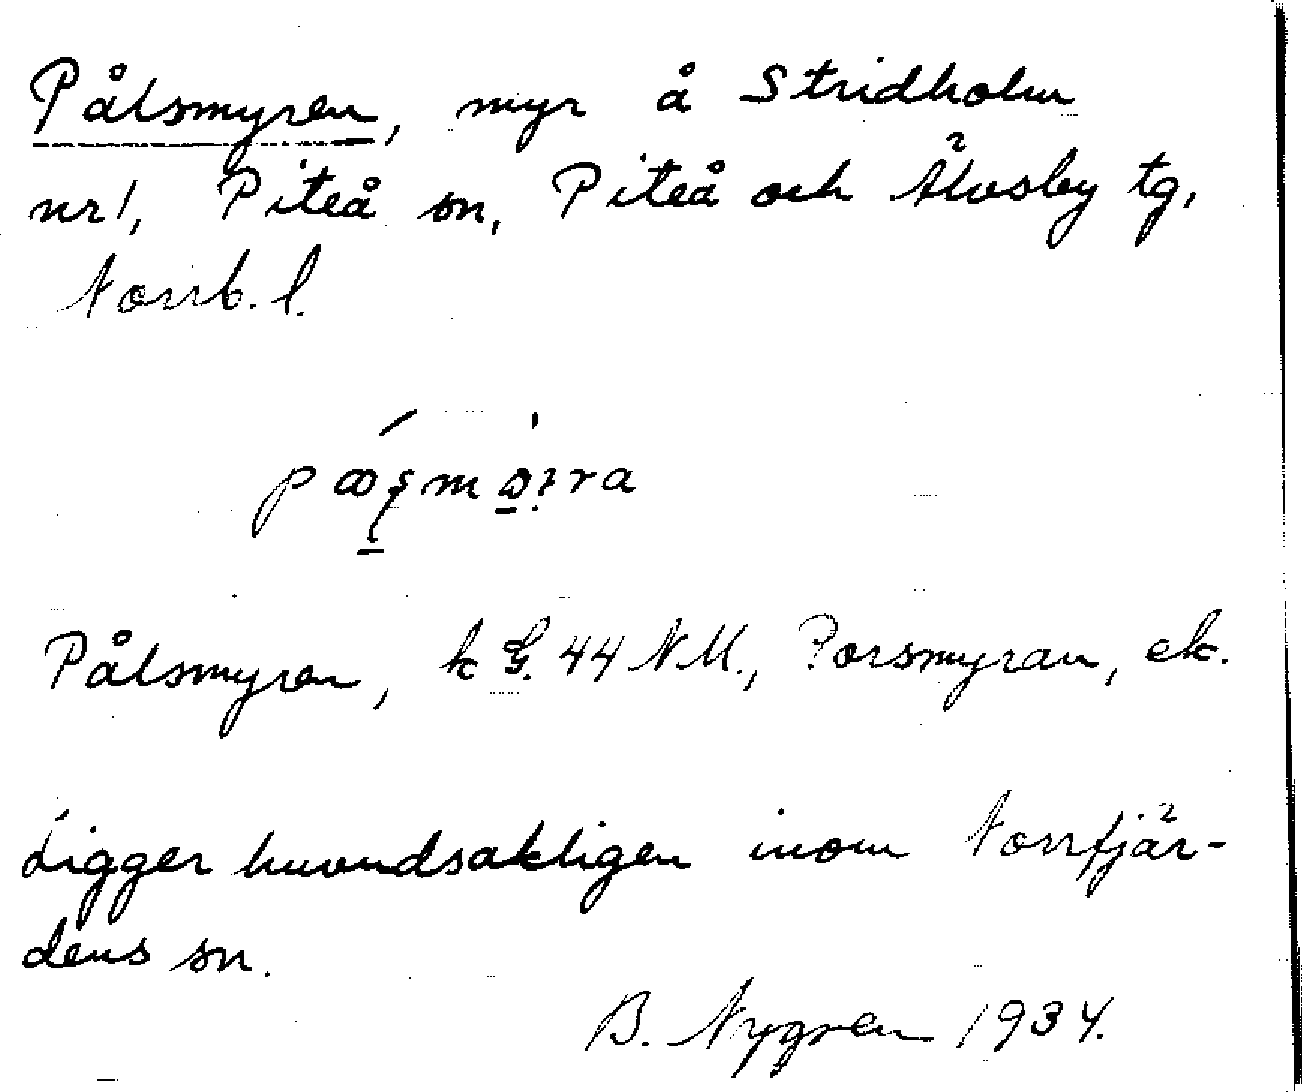 Pålsmyren, myr å Stridholm
nr 1, Piteå sn, Piteå och Älvsby tg,
Norrb. l.
Pålsmyren, k G. 44 NM., Porsmyran, ek.
Ligger huvudsakligen inom Norrfjär-
dens sn.
B. Nygren 1934.